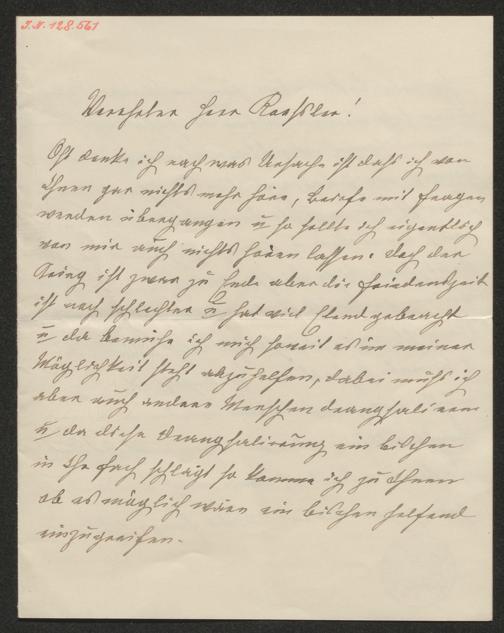 I.N. 128.561
Verehrter Herr Roessler!
Oft denke ich nach was Ursache ist daß ich von
Ihnen gar nichts mehr höre, Briefe mit Fragen
werden übergangen u so sollte ich eigentlich
von mir auch nichts hören lassen. Doch der
Krieg ist zwar zu Ende aber die Friedenszeit
ist noch schlechter u hat viel Elend gebracht
u da bemühe ich mich soweit es in meiner
Möglichkeit steht abzuhelfen, dabei muß ich
aber auch andere Menschen drangsalieren
u da diese Drangsalierung ein bischen
in Ihr Fach schlägt so komme ich zu Ihnen
ob es möglich wäre ein bischen helfend
einzugreifen.